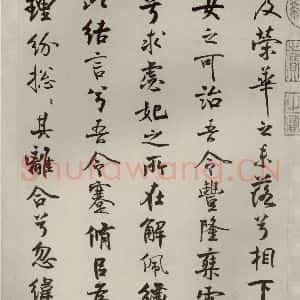 及榮華之未落兮相下
女之可詒吾令豐隆椉雲
兮求虙妃之所在解佩纕
以結言兮吾令蹇脩㠯為
理紛総〻其離合兮忽緯
Shufawang.CN